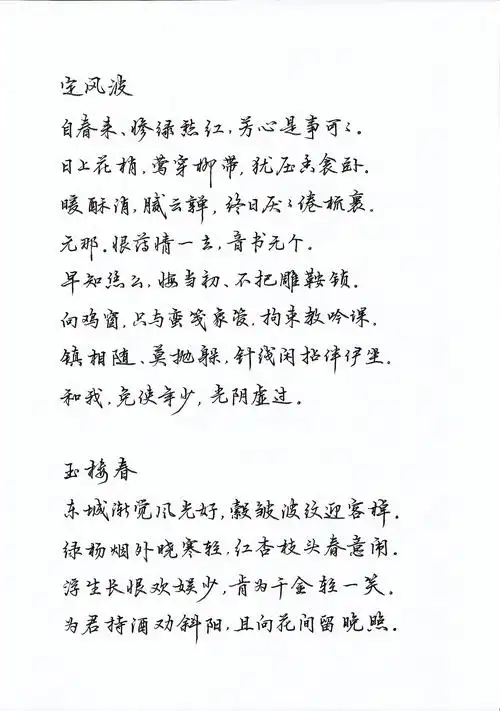 定风波
自春来、惨绿愁红，芳心是事可可。
日上花梢，莺穿柳带，犹压香衾卧。
暖酥消，腻云亸，终日厌厌倦梳裹。
无那。恨薄情一去，音书无个。
早知恁么，悔当初、不把雕鞍锁。
向鸡窗，只与蛮笺象管，拘束教吟课。
镇相随、莫抛躲，针线闲拈伴伊坐。
和我，免使年少，光阴虚过。
玉楼春
东城渐觉风光好，縠皱波纹迎客棹。
绿杨烟外晓寒轻，红杏枝头春意闹。
浮生长恨欢娱少，肯为千金轻一笑。
为君持酒劝斜阳，且向花间留晚照。